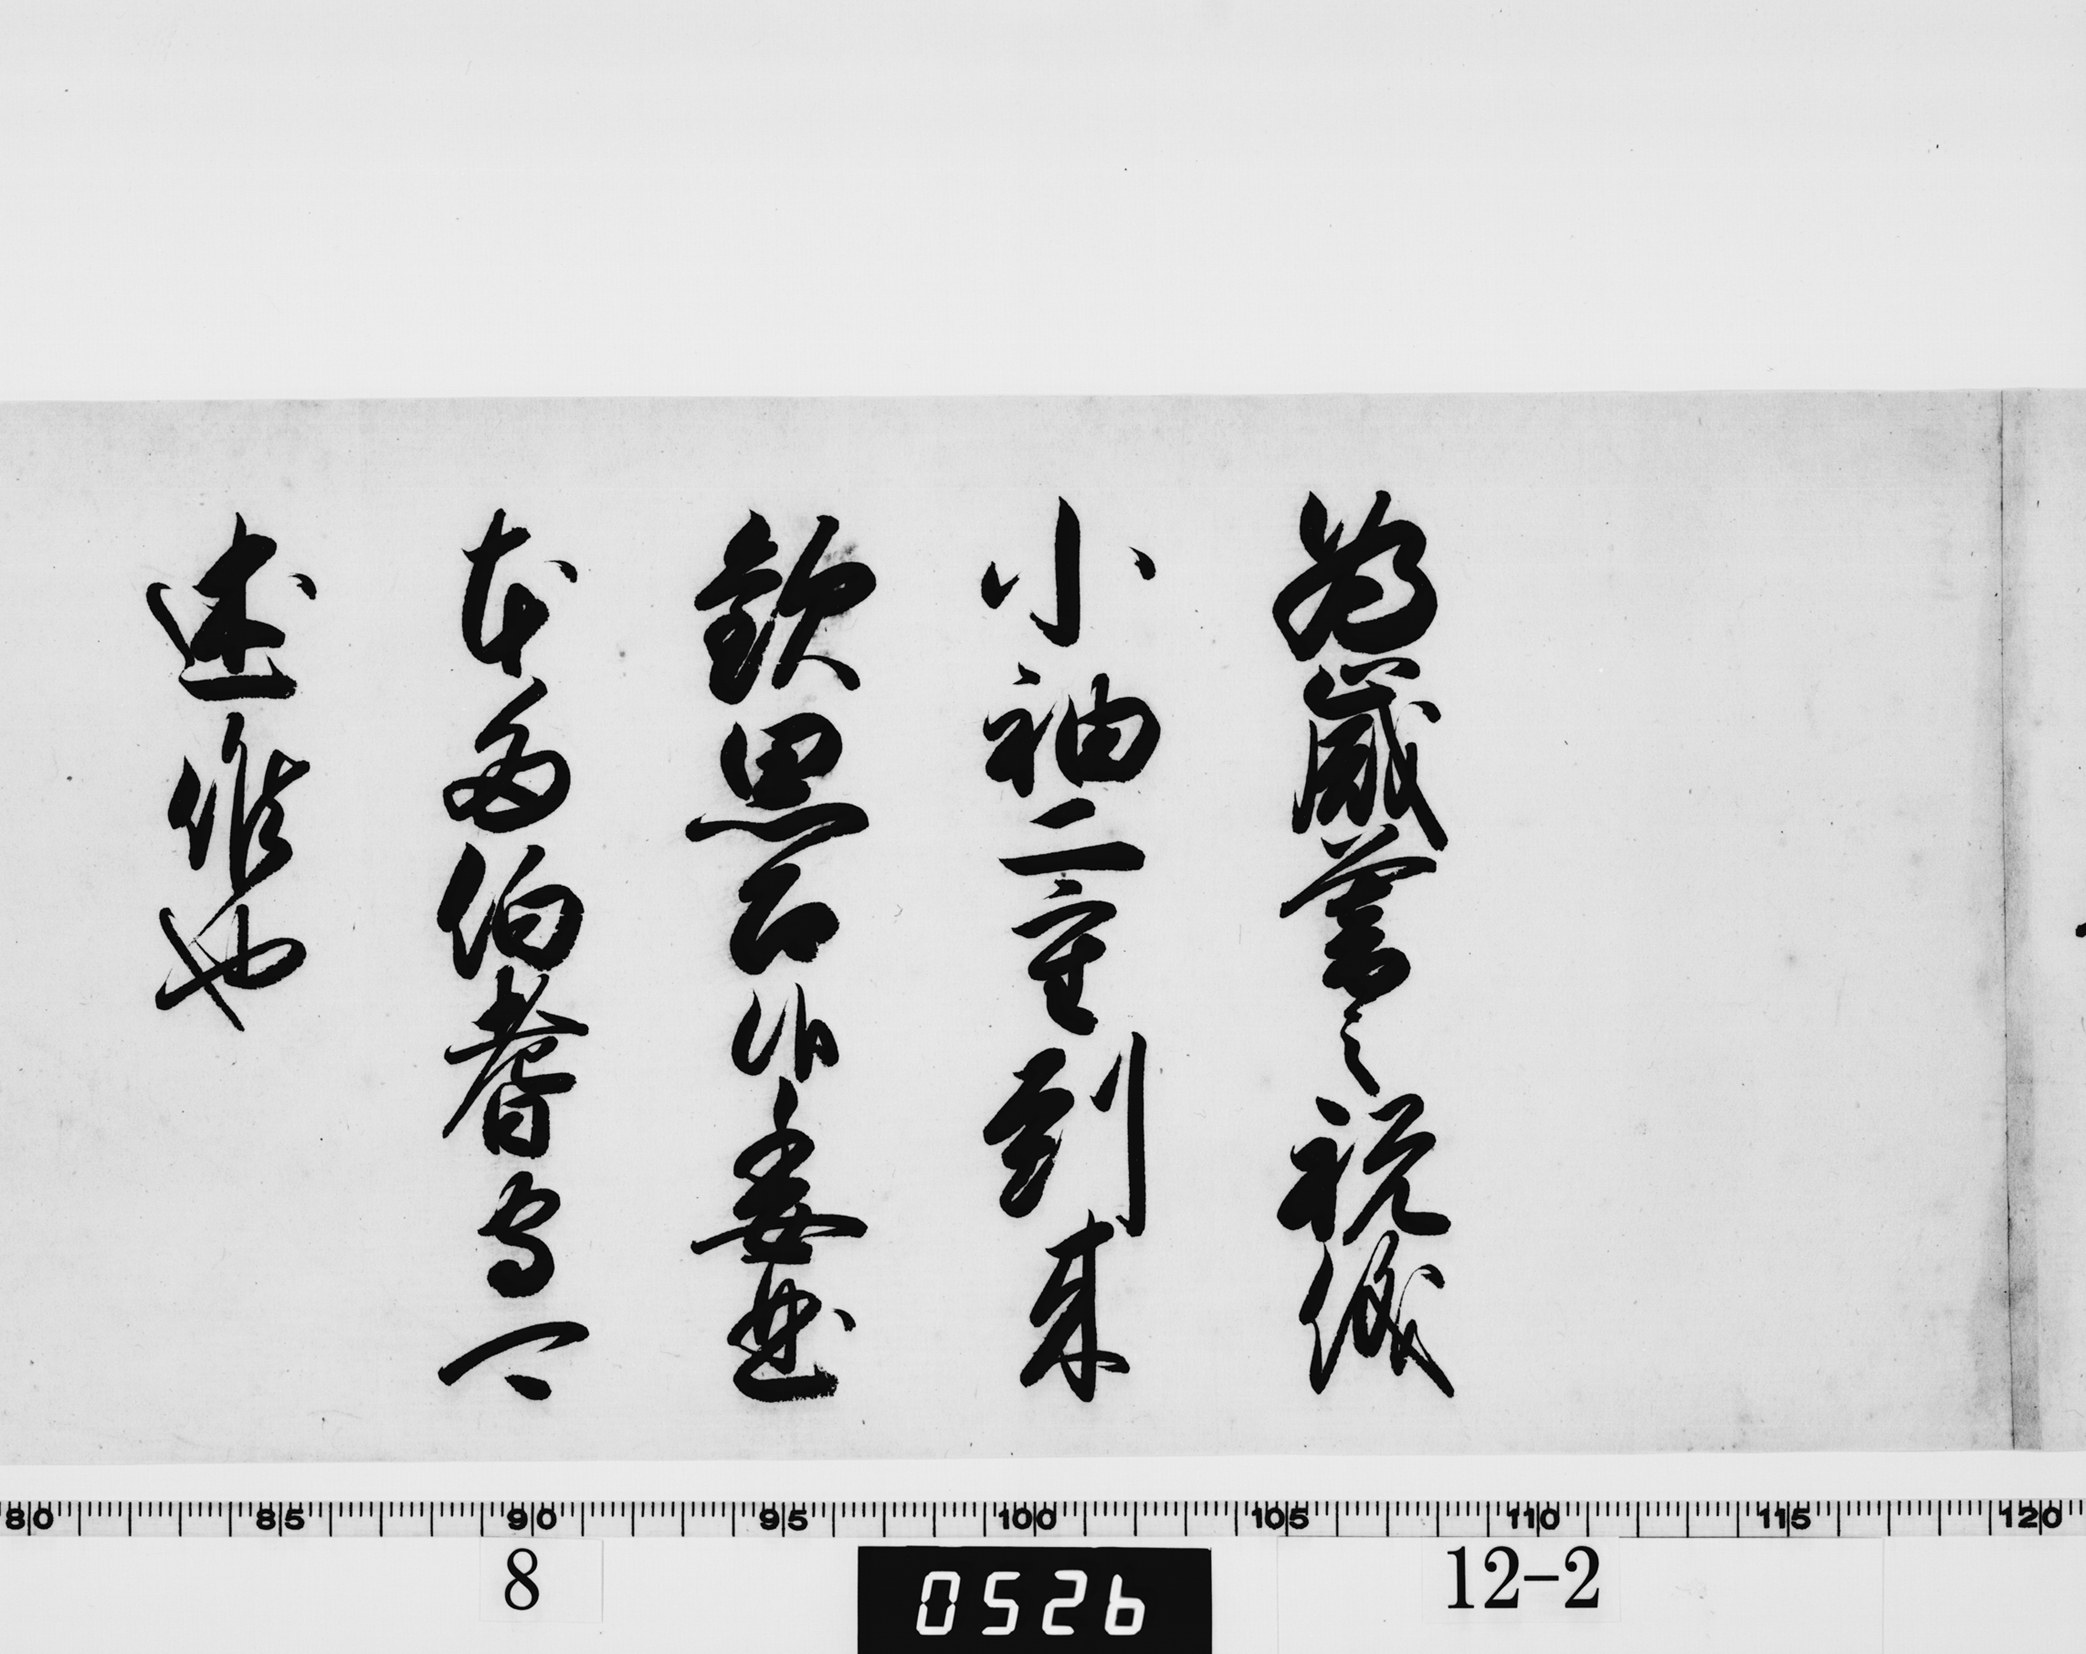 為歳暮之祝儀
小袖二重到来
歓思召候委曲
本多伯耆守可
述候也
80 85 90 95 100 105 110 115 120
8 0526 12-2